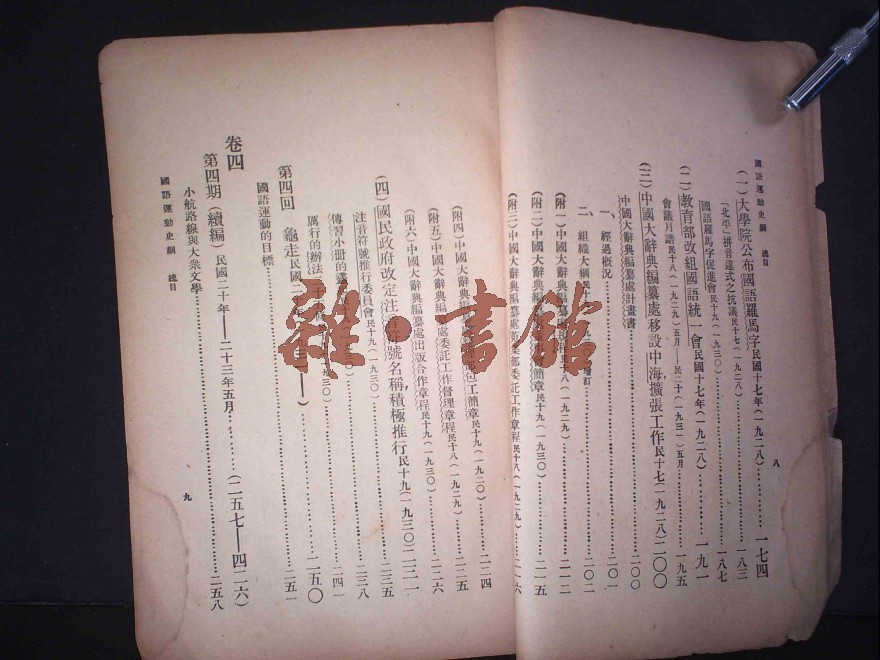 國語運動史綱 總目
八
(一)大學院公布國語羅馬字民國十七年(一九二八)…………一七四
「北平」拼音違式之抗議民十七(一九二八)…………一八三
國語羅馬字促進會民十九(一九三〇)…………一八七
(二)教育部改組國語統一會民國十七年(一九二八)…………一九一
會議月譜民十八(一九二九)五月——民二十(一九三一)五月…………一九五
(三)中國大辭典編纂處移設中海擴張工作民十七(一九二八)二〇〇
中國大辭典編纂處計畫書…………二〇〇
一、經過概況…………二〇一
二、組織大綱民…………二〇二
(附一)中國大辭典編纂處…民十八(一九二九)…………二一二
(附二)中國大辭典編纂處…簡章民十九(一九三〇)…………二一五
(附三)中國大辭典編纂處蒐集部委託工作章程民十八(一九二九)…二一六
(附四)中國大辭典編…包工簡章民十九(一九三〇)…………二二四
(附五)中國大辭典編纂處委託工作督理章程民十八(一九二九)…………二二五
(附六)中國大辭典編纂處出版合作章程民十九(一九三〇)…………二二六
(四)國民政府改定注音符號名稱積極推行民十九(一九三〇)二三一
注音符號推行委員會民十九(一九三〇)…………二三五
傳習小冊的…三〇)…………二三八
厲行的辦法二十…三〇)…………二四一
第四回 龜走民國二十…——)…………二五〇
國語運動的目標…………二五一
卷四
第四期(續編)民國二十年——二十三年五月…………(二五七——四二六)
小航路線與大衆文學…………二五八
國語運動史綱 總目
九
雜·書館